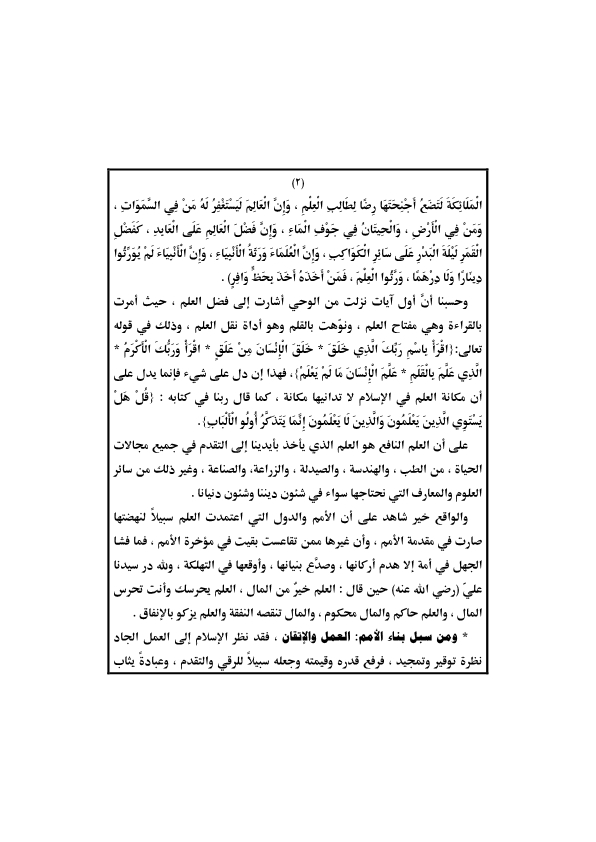 (٢)
الْمَلَائِكَةَ لَتَضَعُ أَجْنِحَتَهَا رِضًا لِطَالِبِ الْعِلْمِ ، وَإِنَّ الْعَالِمَ لَيَسْتَغْفِرُ لَهُ مَنْ فِي السَّمَوَاتِ ،
وَمَنْ فِي الْأَرْضِ ، وَالْحِيتَانُ فِي جَوْفِ الْمَاءِ ، وَإِنَّ فَضْلَ الْعَالِمِ عَلَى الْعَابِدِ ، كَفَضْلِ
الْقَمَرِ لَيْلَةَ الْبَدْرِ عَلَى سَائِرِ الْكَوَاكِبِ ، وَإِنَّ الْعُلَمَاءَ وَرَثَةُ الْأَنْبِيَاءِ ، وَإِنَّ الْأَنْبِيَاءَ لَمْ يُوَرِّثُوا
دِينَارًا وَلَا دِرْهَمًا ، وَرَّثُوا الْعِلْمَ ، فَمَنْ أَخَذَهُ أَخَذَ بِحَظٍّ وَافِرٍ) .
وحسبنا أنَّ أول آيات نزلت من الوحي أشارت إلى فضل العلم ، حيث أمرت
بالقراءة وهي مفتاح العلم ، ونوّهت بالقلم وهو أداة نقل العلم ، وذلك في قوله
تعالى:{اقْرَأْ بِاسْمِ رَبِّكَ الَّذِي خَلَقَ * خَلَقَ الْإِنْسَانَ مِنْ عَلَقٍ * اقْرَأْ وَرَبُّكَ الْأَكْرَمُ *
الَّذِي عَلَّمَ بِالْقَلَمِ * عَلَّمَ الْإِنْسَانَ مَا لَمْ يَعْلَمْ}، فهذا إن دل على شيء فإنما يدل على
أن مكانة العلم في الإسلام لا تدانيها مكانة ، كما قال ربنا في كتابه : {قُلْ هَلْ
يَسْتَوِي الَّذِينَ يَعْلَمُونَ وَالَّذِينَ لَا يَعْلَمُونَ إِنَّمَا يَتَذَكَّرُ أُولُو الْأَلْبَابِ}.
على أن العلم النافع هو العلم الذي يأخذ بأيدينا إلى التقدم في جميع مجالات
الحياة ، من الطب ، والهندسة ، والصيدلة ، والزراعة، والصناعة ، وغير ذلك من سائر
العلوم والمعارف التي نحتاجها سواء في شئون ديننا وشئون دنيانا .
والواقع خير شاهد على أن الأمم والدول التي اعتمدت العلم سبيلاً لنهضتها
صارت في مقدمة الأمم ، وأن غيرها ممن تقاعست بقيت في مؤخرة الأمم ، فما فشا
الجهل في أمة إلا هدم أركانها ، وصدَّع بنيانها ، وأوقعها في التهلكة ، ولله در سيدنا
عليّ (رضي الله عنه) حين قال : العلم خيرٌ من المال ، العلم يحرسك وأنت تحرس
المال ، والعلم حاكم والمال محكوم ، والمال تنقصه النفقة والعلم يزكو بالإنفاق .
* ومن سبل بناء الأمم: العمل والإتقان ، فقد نظر الإسلام إلى العمل الجاد
نظرة توقير وتمجيد ، فرفع قدره وقيمته وجعله سبيلاً للرقي والتقدم ، وعبادةً يثاب